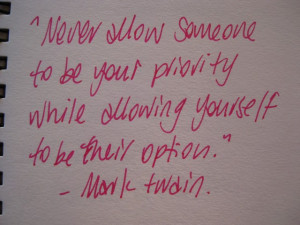 "Never allow someone
to be your priority
while allowing yourself
to be their option."
- Mark twain.